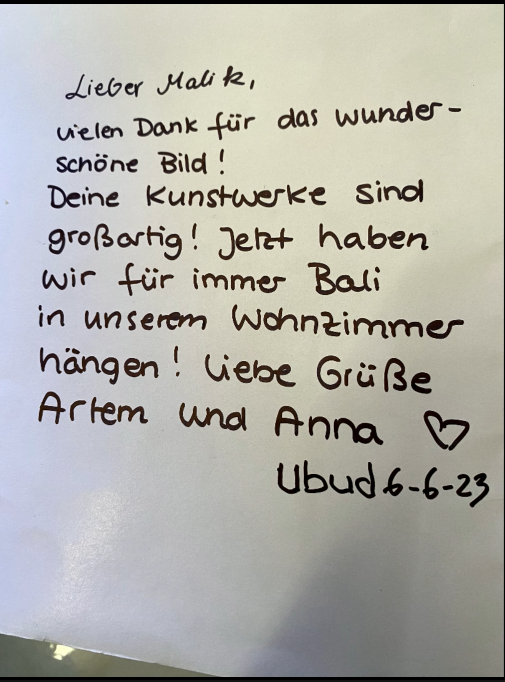 Lieber Malik,
vielen Dank für das wunder-
schöne Bild!
Deine Kunstwerke sind
großartig! Jetzt haben
wir für immer Bali
in unserem Wohnzimmer
hängen! Liebe Grüße
Artem und Anna ♡
Ubud 6-6-23